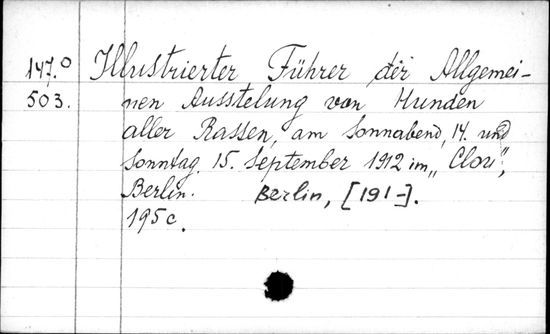 147.0 Illustrierter Führer der Allgemei-
503. nen Ausstelung von Hunden
aller Rassen, am Sonnabend, 14. und
Sonntag 15. September 1912 im „Clou“,
Berlin. Berlin, [191-].
195c.